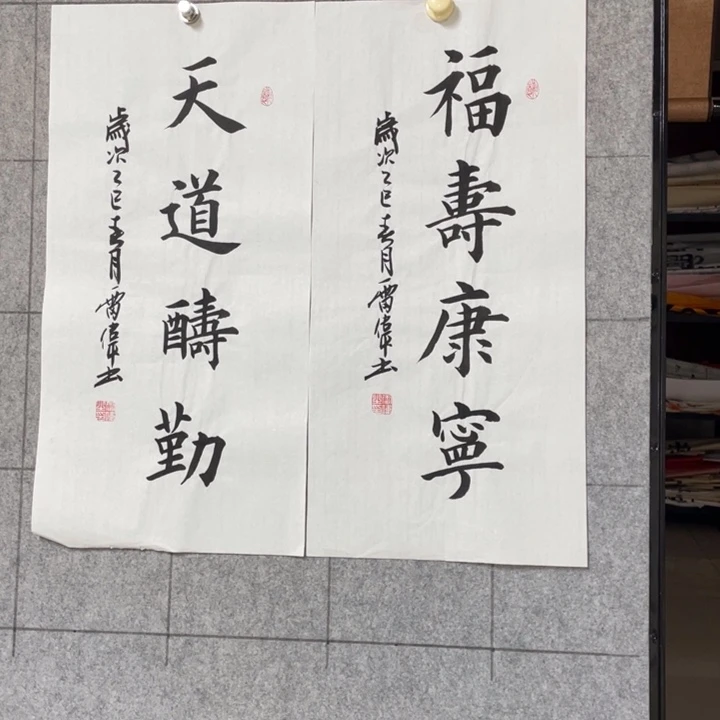 福壽康寧
歲次乙巳春月雷偉书
天道醻勤
歲次乙巳春月雷偉书